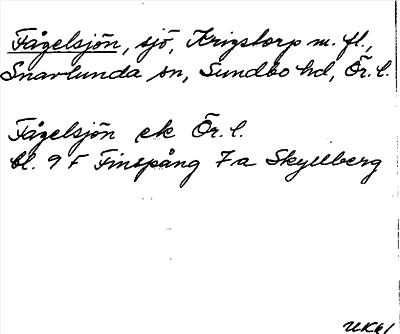 Fågelsjön, sjö, Krigstorp m. fl.,
Snavlunda sn, Sundbo hd, Ör. l.
Fågelsjön ek Ör. l.
bl. 9 F Finspång 7 a Skyllberg